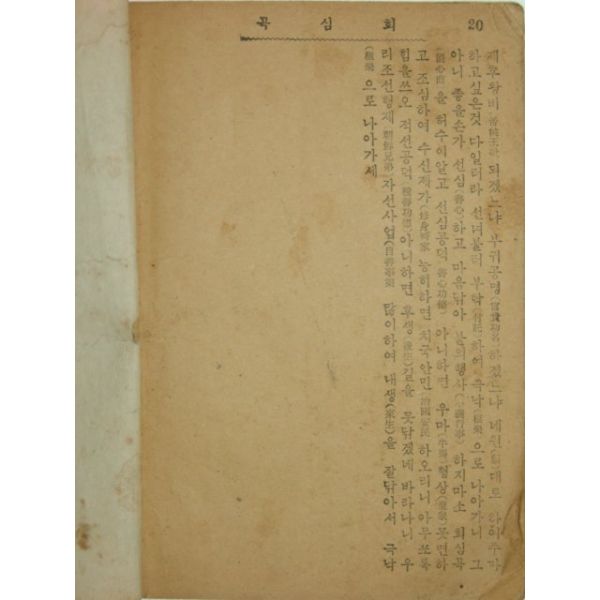 20 회심곡
제후왕비(諸侯王妃) 되겠느냐 부귀공명(富貴功名)하겠느냐 네원(願)대로 하여주마
하고싶은것 다일러라 선녀불러 부탁(付託)하여 극낙(極樂)으로 나아가니 그
아니 좋을손가 선심(善心)하고 마음닦아 불의행사(不義行事) 하지마소 회심곡
(回心曲)을 허수이알고 선심공덕(善心功德) 아니하면 우마(牛馬)형상(形象)못면하
고 조심하여 수신제가(修身齊家) 능히하면 치국안민(治國安民)하오리니 아무쪼록
힘을쓰오 적선공덕(積善功德)아니하면 후생(後生)길을 못닦겠네 바라나니 우
리조선형제(朝鮮兄弟) 자선사업(自善事業) 많이하여 내생(來生)을 잘닦아서 극낙
(極樂)으로 나아가세